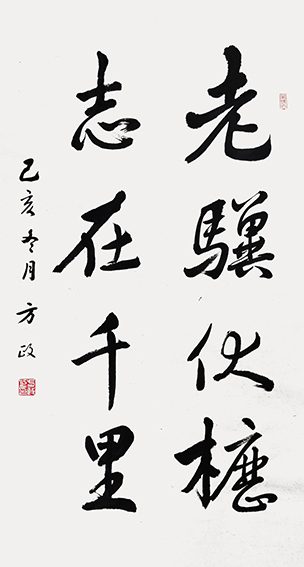 老驥伏櫪
志在千里
己亥冬月方政